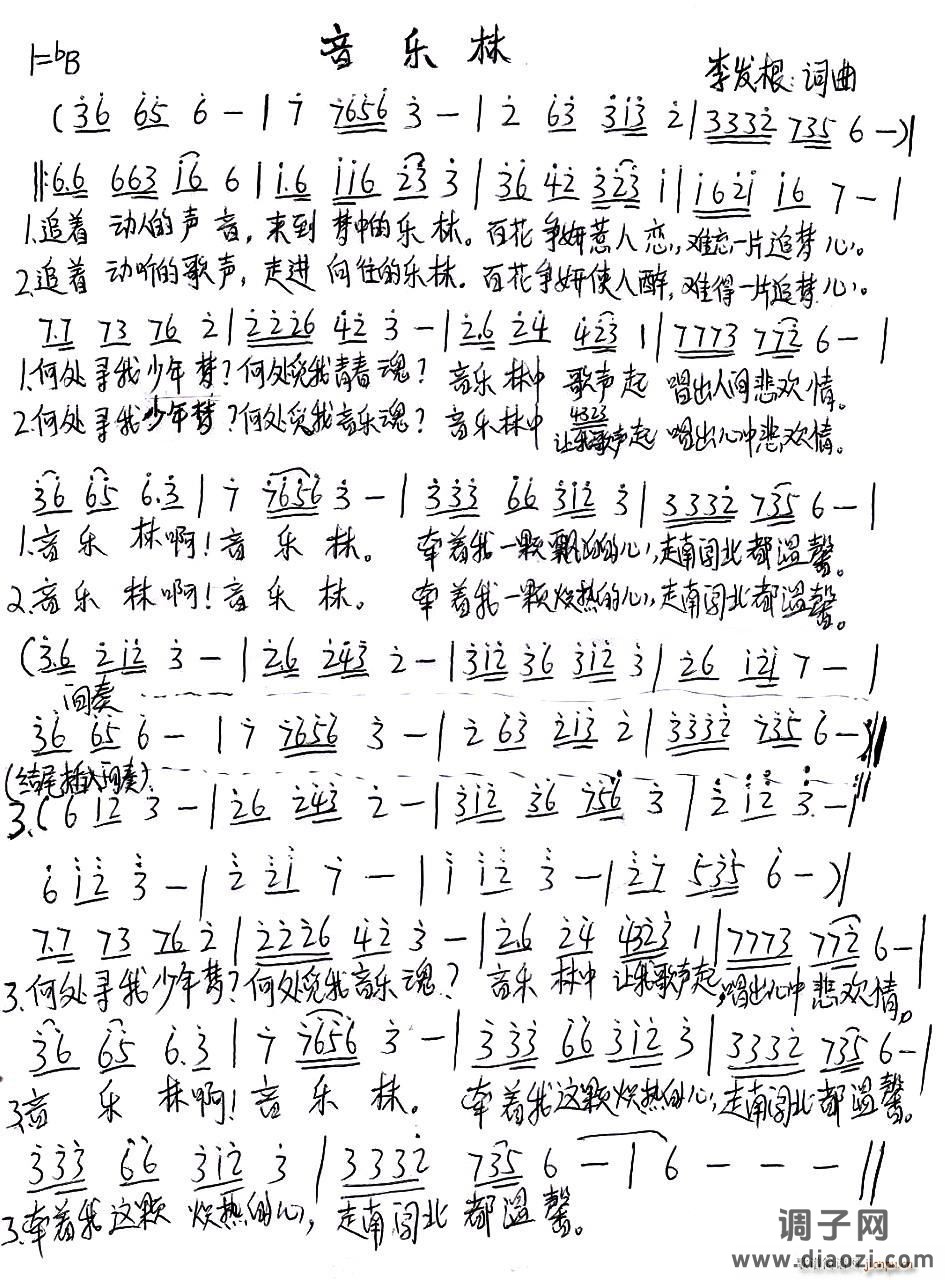 音乐林
1=bB
李发根 词曲
(36 65 6 - | 7 7656 3 - | 2 63 313 2 | 3332 735 6 -)|
‖:6.6 663 i6 6 | i.6 ii6 23 3 | 36 42 323 i | i62i i6 7 - |
1.追着 动人的声音,来到 梦中的乐林。百花争妍惹人恋,难忘一片追梦心。
2.追着 动听的歌声,走进 向往的乐林。百花争妍使人醉,难得一片追梦心。
7.7 73 76 2 | 2226 42 3 - | 2.6 24 423 1 | 7773 772 6 - |
1.何处寻我少年梦?何处觅我青春魂? 音乐林中 歌声起 唱出人间悲欢情。
4323
2.何处寻我少年梦?何处觅我音乐魂? 音乐林中 让我歌声起 唱出心中悲欢情。
36 65 6.3 | 7 7656 3 - | 333 66 312 3 | 3332 735 6 - |
1.音乐林啊!音乐林。 牵着我一颗飘泊的心,走南闯北都温馨。
2.音乐林啊!音乐林。 牵着我一颗炽热的心,走南闯北都温馨。
(3.6 212 3 - | 2.6 243 2 - | 312 36 312 3 | 26 121 7 - |
间奏
36 65 6 - | 7 7656 3 - | 2 63 213 2 | 3332 735 6 -:‖
(结尾插入间奏)
3.(6 12 3 - | 26 243 2 - | 312 36 756 3 | 2 12 3 - |
6 12 3 - | 2 21 7 - | 1 112 3 - | 27 535 6 -)|
7.7 73 76 2 | 2226 42 3 - | 2.6 24 4323 1 | 7773 772 6 - |
3.何处寻我少年梦?何处觅我音乐魂? 音乐林中 让我歌声起,唱出心中悲欢情。
36 65 6.3 | 7 7656 3 - | 333 66 312 3 | 3332 735 6 - |
3.音乐林啊!音乐林。 牵着我这颗炽热的心,走南闯北都温馨。
333 66 312 3 | 3332 735 6 - | 6 - - - ‖
3.牵着我这颗 炽热的心,走南闯北都温馨。
调子网
www.diaozi.com